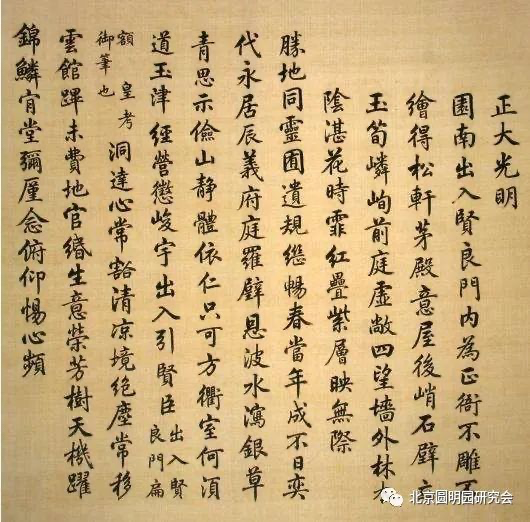 正大光明
園南出入賢良門內為正衙不雕不
繪得松軒茅殿意屋後峭石壁立
玉筍嶙峋前庭虛敞四望墻外林木
陰湛花時霏紅疊紫層映無際
勝地同靈囿遺規繼暢春當年成不日奕
代永居辰義府庭羅壁恩波水瀉銀草
青思示儉山靜體依仁只可方衢室何須
道玉津經營懲峻宇出入引賢臣出入賢良門扁
額皇考御筆也洞達心常豁清涼境絕塵常移
雲館蹕未費地官緡生意榮芳樹天機躍
錦鱗肯堂彌厪念俯仰惕心頻
北京圆明园研究会